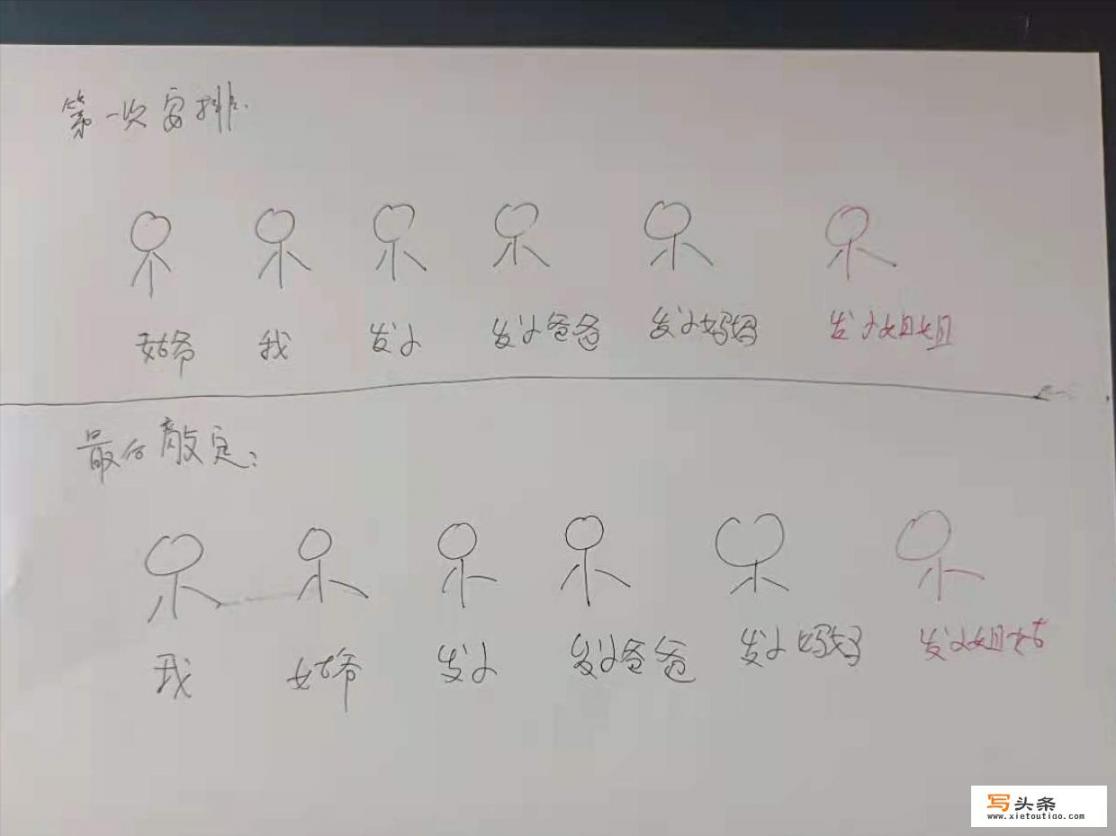 第一次安排.
姑爷 我 发小 发小爸爸 发小妈妈 发小姐姐
最后敲定:
我 姑爷 发小 发小爸爸 发小妈妈 发小姐姑
写头条
www.xietoutiao.com